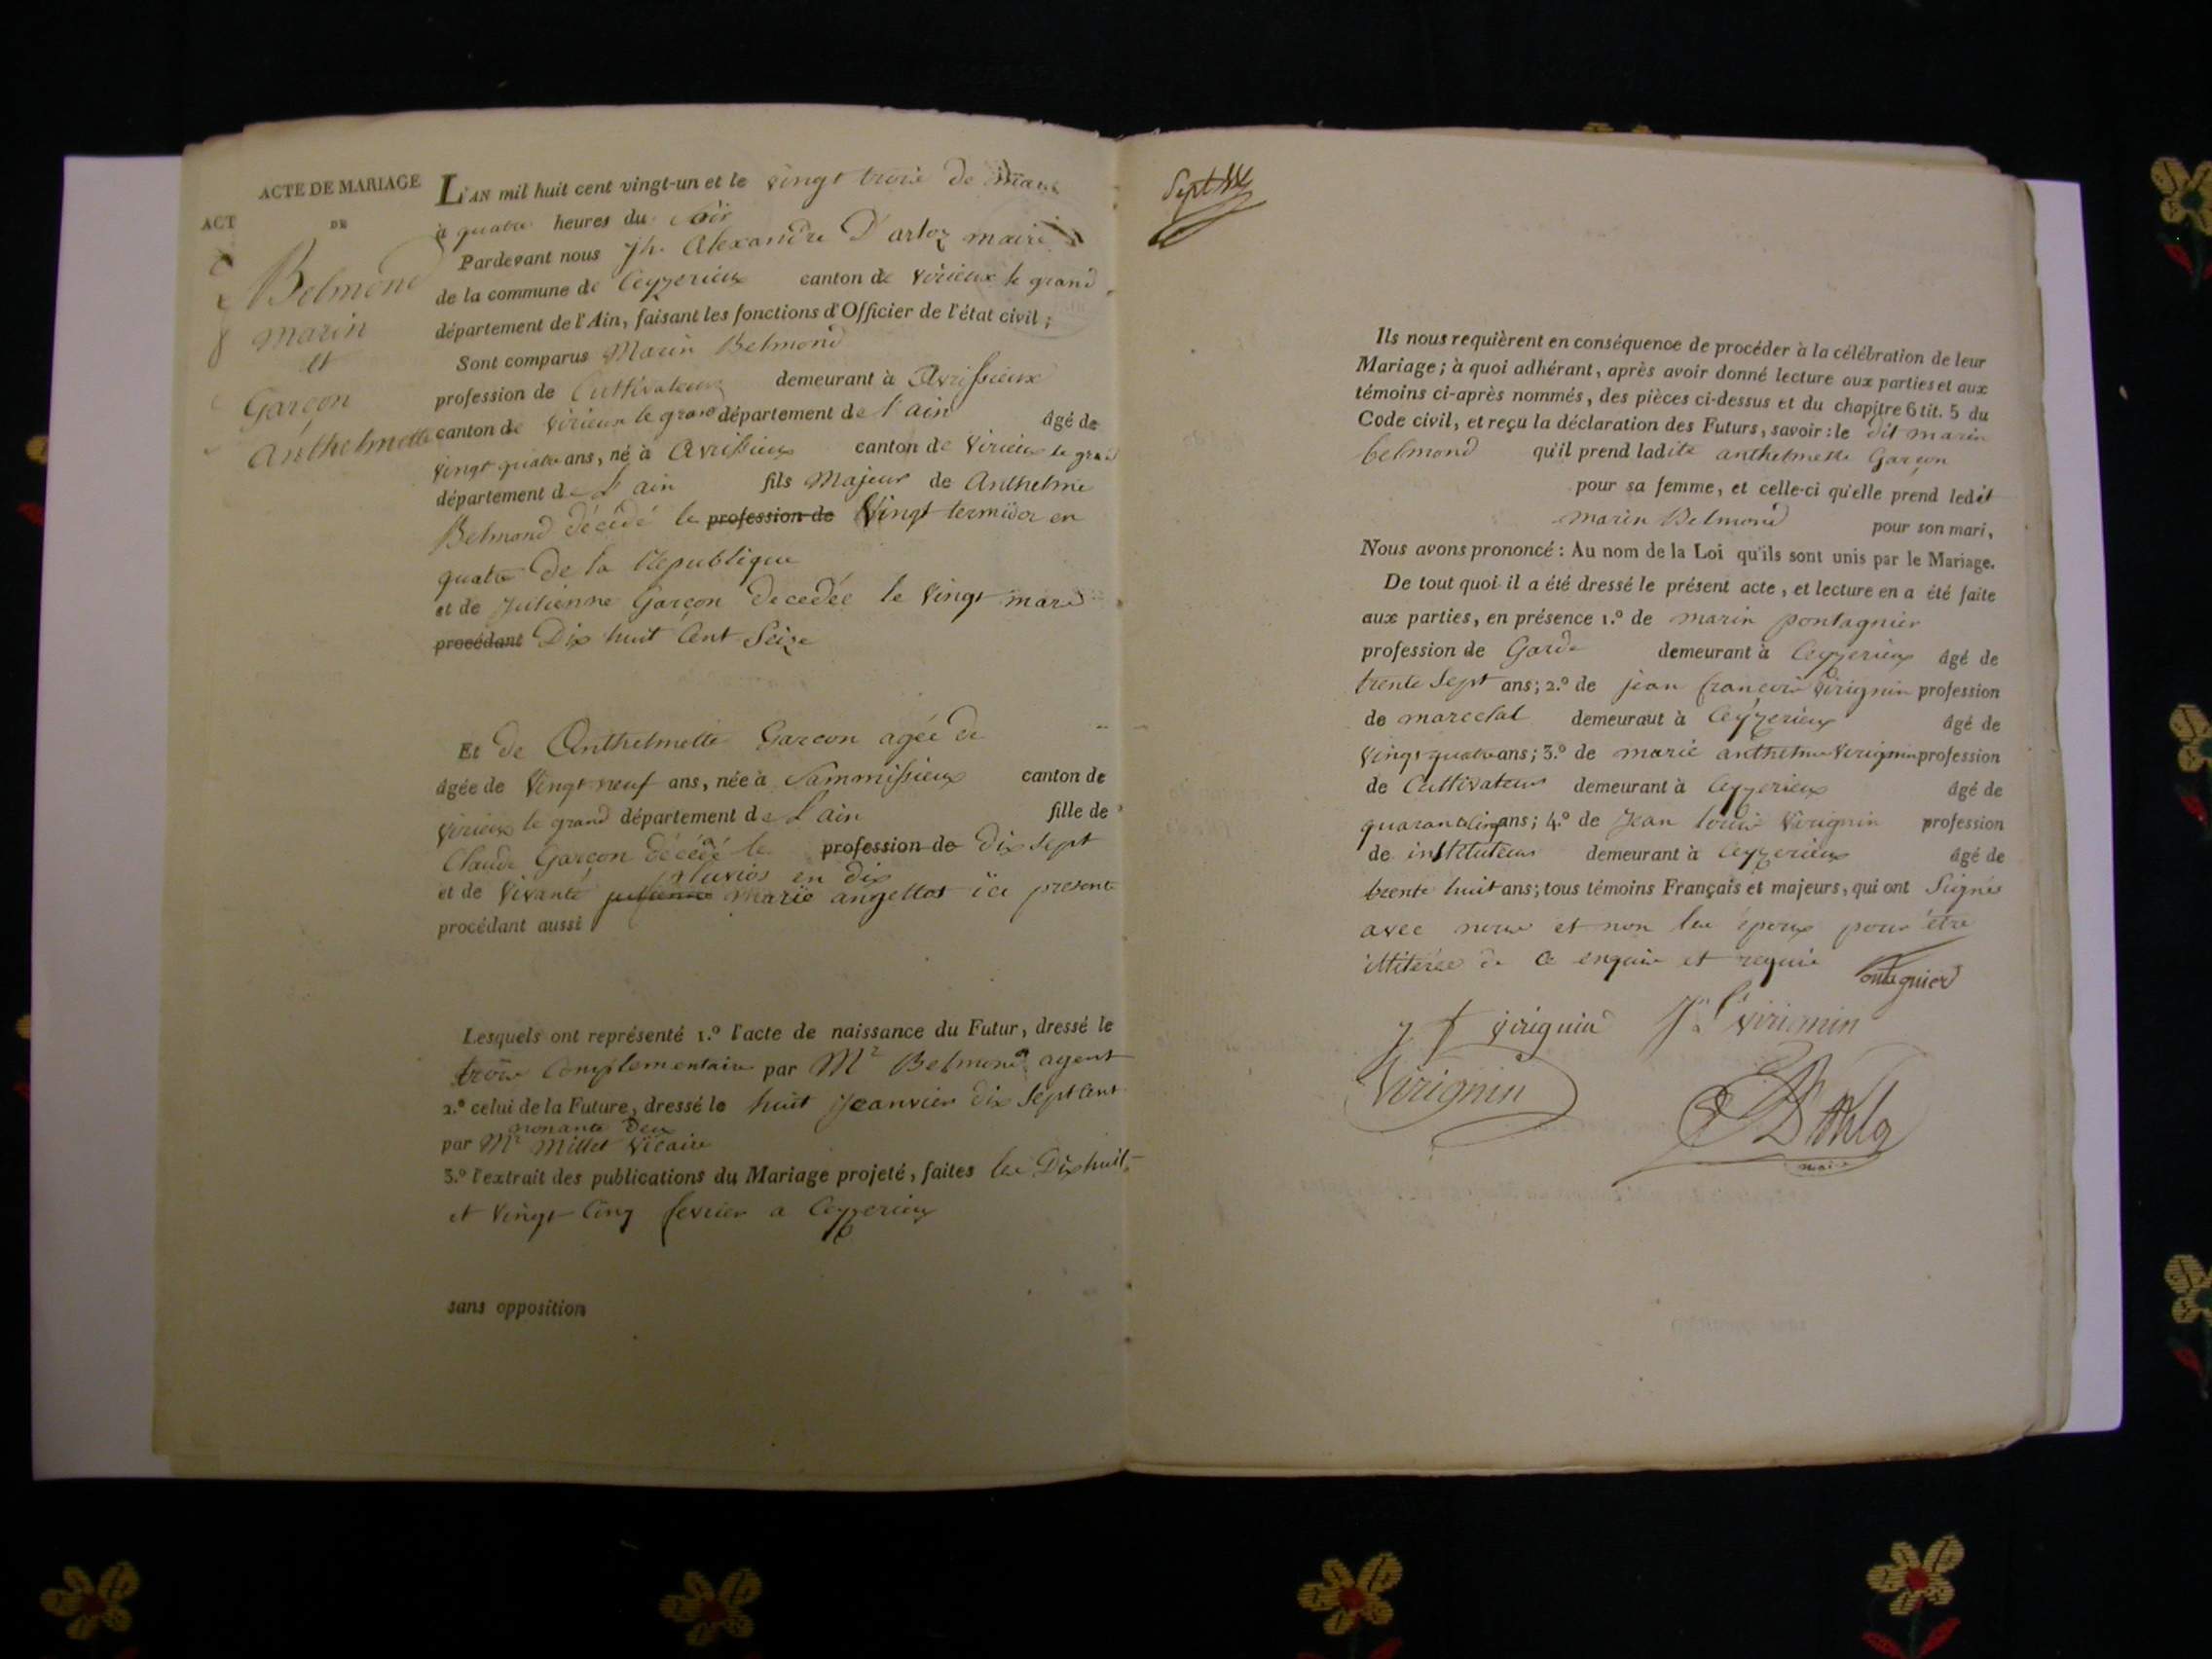 ACTE DE MARIAGE
ACT
DE
Belmond
marin
et
Garçon
Anthelmette
L'AN mil huit cent vingt-un et le vingt trois de mars
à quatre heures du soir
Pardevant nous Jh. Alexandre D'arloz maire
de la commune de Ceyzerieux canton de Virieux le grand
département de l'Ain, faisant les fonctions d'Officier de l'état civil;
Sont comparus Marin Belmond
profession de Cultivateur demeurant à Avrissieux
canton de Virieux le grand département de l'ain âgé de
vingt quatre ans, né à Avrissieux canton de Virieux le grand
département de L'ain fils Majeur de Anthelme
Belmond décédé le profession de Vingt termidor en
quatre de la Republique
et de Julienne Garçon decedée le Vingt mars
procédant Dix huit Cent Seize
Et de Anthelmette Garcon agée de
âgée de Vingt neuf ans, née à Sammissieux canton de
Virieux le grand département de L'ain fille de
Claude Garçon décédé le profession de dix sept
pluvios en dix
et de Vivante julienne marie angellos ici presente
procédant aussi
Lesquels ont représenté 1.º l'acte de naissance du Futur, dressé le
trois Complementaire par Mr Belmond agent
2.º celui de la Future, dressé le huit Jeanvier dix Sept Cent
nonante deux
par Mr Millet Vicaire
3.º l'extrait des publications du Mariage projeté, faites les Dix huit
et Vingt Cinq fevrier a Ceyzerieux
sans opposition
Sept
Ils nous requièrent en conséquence de procéder à la célébration de leur
Mariage; à quoi adhérant, après avoir donné lecture aux parties et aux
témoins ci-après nommés, des pièces ci-dessus et du chapitre 6 tit. 5 du
Code civil, et reçu la déclaration des Futurs, savoir: le dit marin
belmond qu'il prend ladite anthelmette Garçon
pour sa femme, et celle-ci qu'elle prend ledit
marin Belmond pour son mari,
Nous avons prononcé: Au nom de la Loi qu'ils sont unis par le Mariage.
De tout quoi il a été dressé le présent acte, et lecture en a été faite
aux parties, en présence 1.º de marin pontagnier
profession de Garde demeurant à Ceyzerieux âgé de
trente Sept ans; 2.º de jean francois Virignin profession
de marechal demeuraut à Ceyzerieux âgé de
Vingt quatre ans; 3.º de marie anthelme Virignin profession
de Cultivateur demeurant à Ceyzerieux âgé de
quarante Cinq ans; 4.º de Jean louis Virignin profession
de instituteur demeurant à Ceyzerieux âgé de
trente huit ans; tous témoins Français et majeurs, qui ont Signés
avec nous et non les époux pour être
illiterés de ce enquis et requis
ontagnier
j f Virignin J. Virignin
Virignin
maire